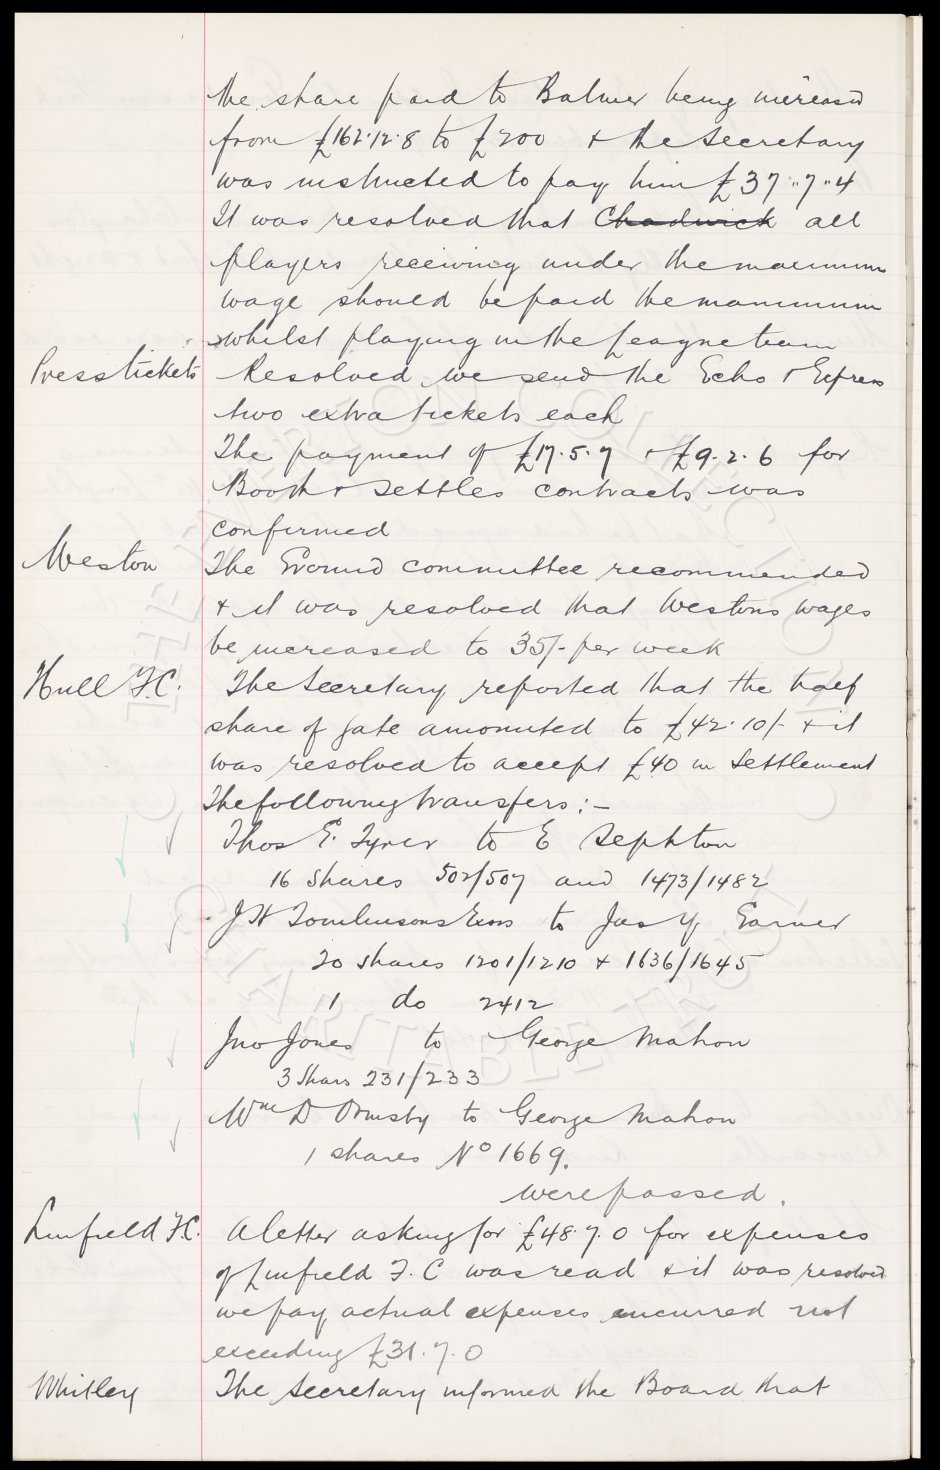 the share paid to Balmer being increased
from £162.12.8 to £200 & the Secretary
was instructed to pay him £37"7"4
It was resolved that Chadwick all
players receiving under the maximum
wage should be paid the maximum
whilst playing in the League team
Press tickets Resolved we send the Echo & Express
two extra tickets each
The payment of £17.5.7 & £9.2.6 for
Booth & Settles contracts was
confirmed
Weston The Ground committee recommended
& it was resolved that Westons wages
be increased to 35/- per week
Hull F.C. The Secretary reported that the half
share of gate amounted to £42.10/- & it
was resolved to accept £40 in settlement
The following transfers:-
Thos E. Tyrer to E Sephton
16 shares 502/507 and 1473/1482
J H Tomlinsons Exors to Jas Y Earner
20 shares 1201/1210 & 1636/1645
1 do 2412
Jno Jones to George Mahon
3 Shares 231/233
Wm D Ormsby to George Mahon
1 shares No 1669.
were passed.
Linfield F.C. A letter asking for £48.7.0 for expenses
of Linfield F.C was read & it was resolved
we pay actual expenses incurred not
exceeding £31.7.0
Whitley The Secretary informed the Board that
THE EVERTON COLLECTION
CHARITABLE TRUST